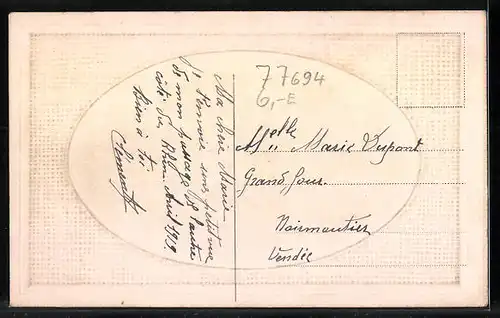 77694
6,-E
Ma chère Marie
J't'envoie une petite vue
de mon passage de l'autre
côté du Rhin Avril 1919
bien à toi
Clément
Melle Marie Dupont
Grand'Four
Noirmoutier
Vendée